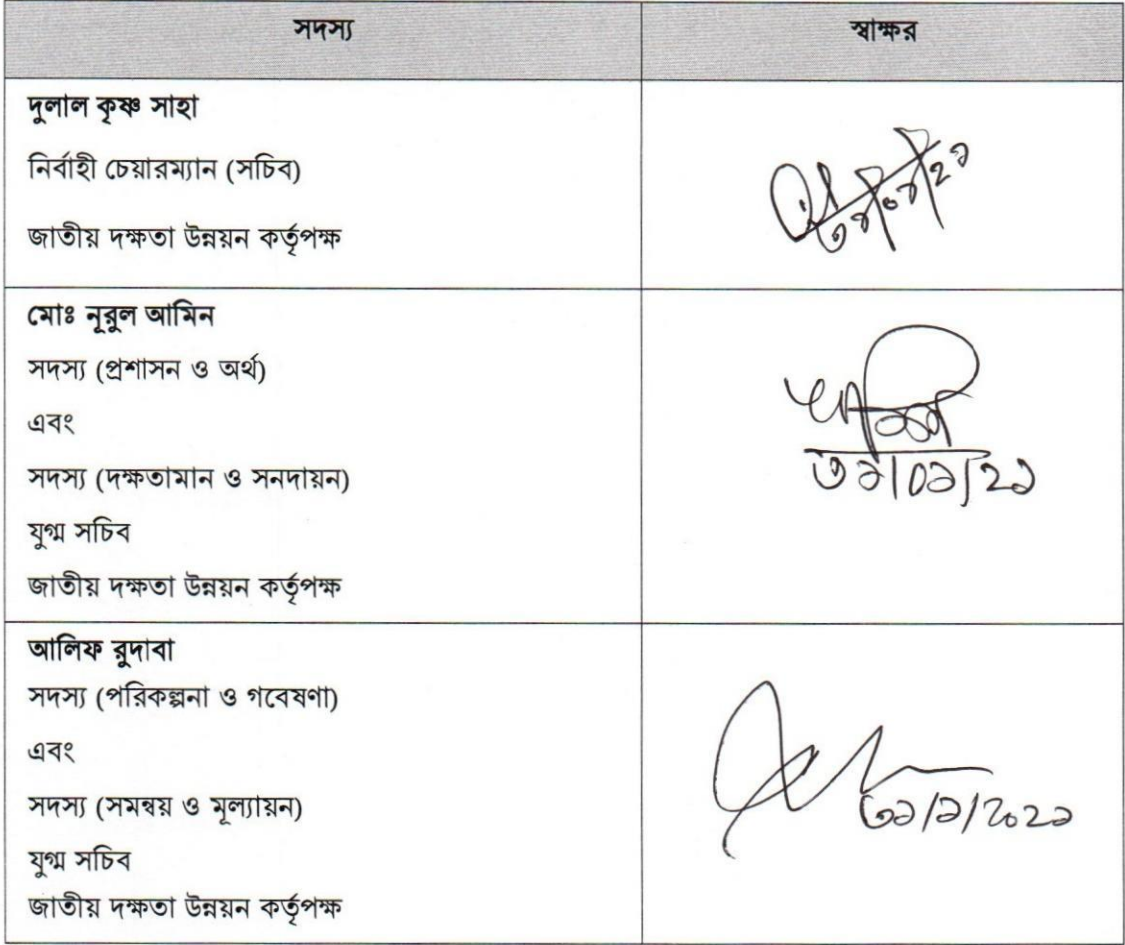 সদস্য স্বাক্ষর
দুলাল কৃষ্ণ সাহা
নির্বাহী চেয়ারম্যান (সচিব)
জাতীয় দক্ষতা উন্নয়ন কর্তৃপক্ষ
মোঃ নূরুল আমিন
সদস্য (প্রশাসন ও অর্থ)
এবং
সদস্য (দক্ষতামান ও সনদায়ন)
যুগ্ম সচিব
জাতীয় দক্ষতা উন্নয়ন কর্তৃপক্ষ
৩১/০১/২১
আলিফ রুদাবা
সদস্য (পরিকল্পনা ও গবেষণা)
এবং
সদস্য (সমন্বয় ও মূল্যায়ন)
যুগ্ম সচিব
জাতীয় দক্ষতা উন্নয়ন কর্তৃপক্ষ
৩১/১/২০২১